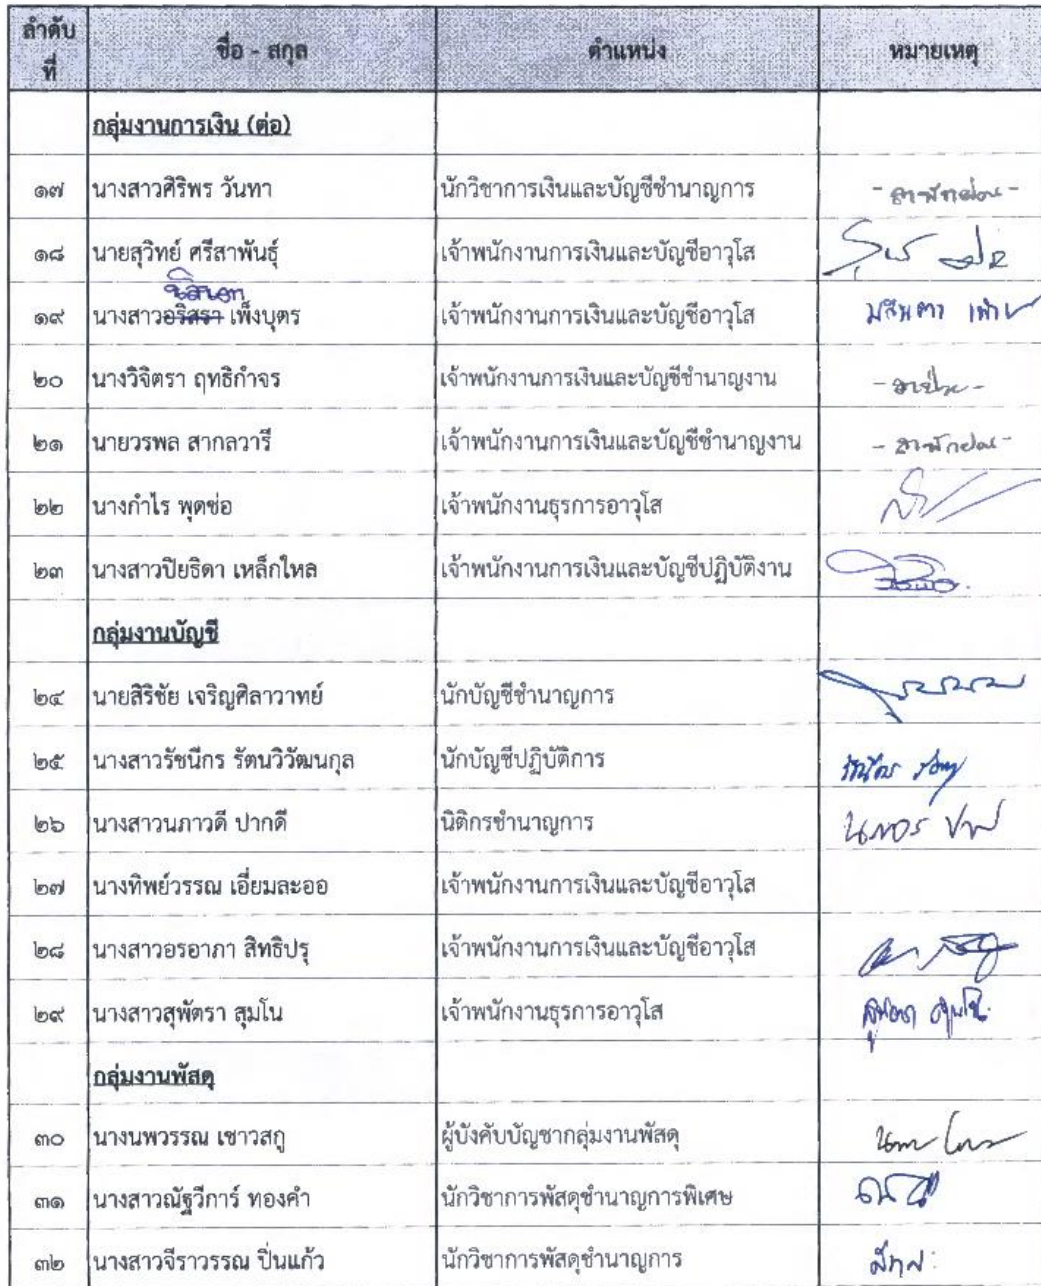 ลำดับที่ ชื่อ - สกุล ตำแหน่ง หมายเหตุ
กลุ่มงานการเงิน (ต่อ)
๑๗ นางสาวศิริพร วันทา นักวิชาการเงินและบัญชีชำนาญการ - ลาพักผ่อน -
๑๘ นายสุวิทย์ ศรีสาพันธุ์ เจ้าพนักงานการเงินและบัญชีอาวุโส
๑๙ นางสาวอริสรา เพ็งบุตร เจ้าพนักงานการเงินและบัญชีอาวุโส
๒๐ นางวิจิตรา ฤทธิกำจร เจ้าพนักงานการเงินและบัญชีชำนาญงาน - ลาป่วย -
๒๑ นายวรพล สากลวารี เจ้าพนักงานการเงินและบัญชีชำนาญงาน - ลาพักผ่อน -
๒๒ นางกำไร พุดช่อ เจ้าพนักงานธุรการอาวุโส
๒๓ นางสาวปิยธิดา เหล็กใหล เจ้าพนักงานการเงินและบัญชีปฏิบัติงาน
กลุ่มงานบัญชี
๒๔ นายสิริชัย เจริญศิลาวาทย์ นักบัญชีชำนาญการ
๒๕ นางสาวรัชนีกร รัตนวิวัฒนกุล นักบัญชีปฏิบัติการ
๒๖ นางสาวนภาวดี ปากดี นิติกรชำนาญการ
๒๗ นางทิพย์วรรณ เอี่ยมละออ เจ้าพนักงานการเงินและบัญชีอาวุโส
๒๘ นางสาวอรอาภา สิทธิปรุ เจ้าพนักงานการเงินและบัญชีอาวุโส
๒๙ นางสาวสุพัตรา สุมโน เจ้าพนักงานธุรการอาวุโส
กลุ่มงานพัสดุ
๓๐ นางนพวรรณ เชาวสกู ผู้บังคับบัญชากลุ่มงานพัสดุ
๓๑ นางสาวณัฐวีการ์ ทองคำ นักวิชาการพัสดุชำนาญการพิเศษ
๓๒ นางสาวจีราวรรณ ปิ่นแก้ว นักวิชาการพัสดุชำนาญการ